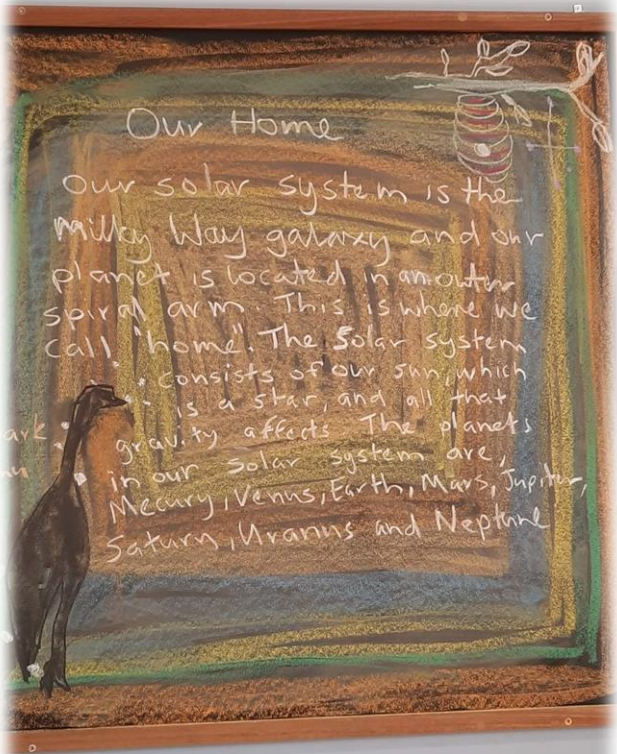 Our Home
Our solar system is the
milky Way galaxy and our
planet is located in an outer
spiral arm. This is where we
call "home". The Solar system
consists of our sun, which
is a star, and all that
gravity affects The planets
in our solar system are,
Mecury, Venus, Earth, Mars, Jupiter,
Saturn, Uranus and Neptune